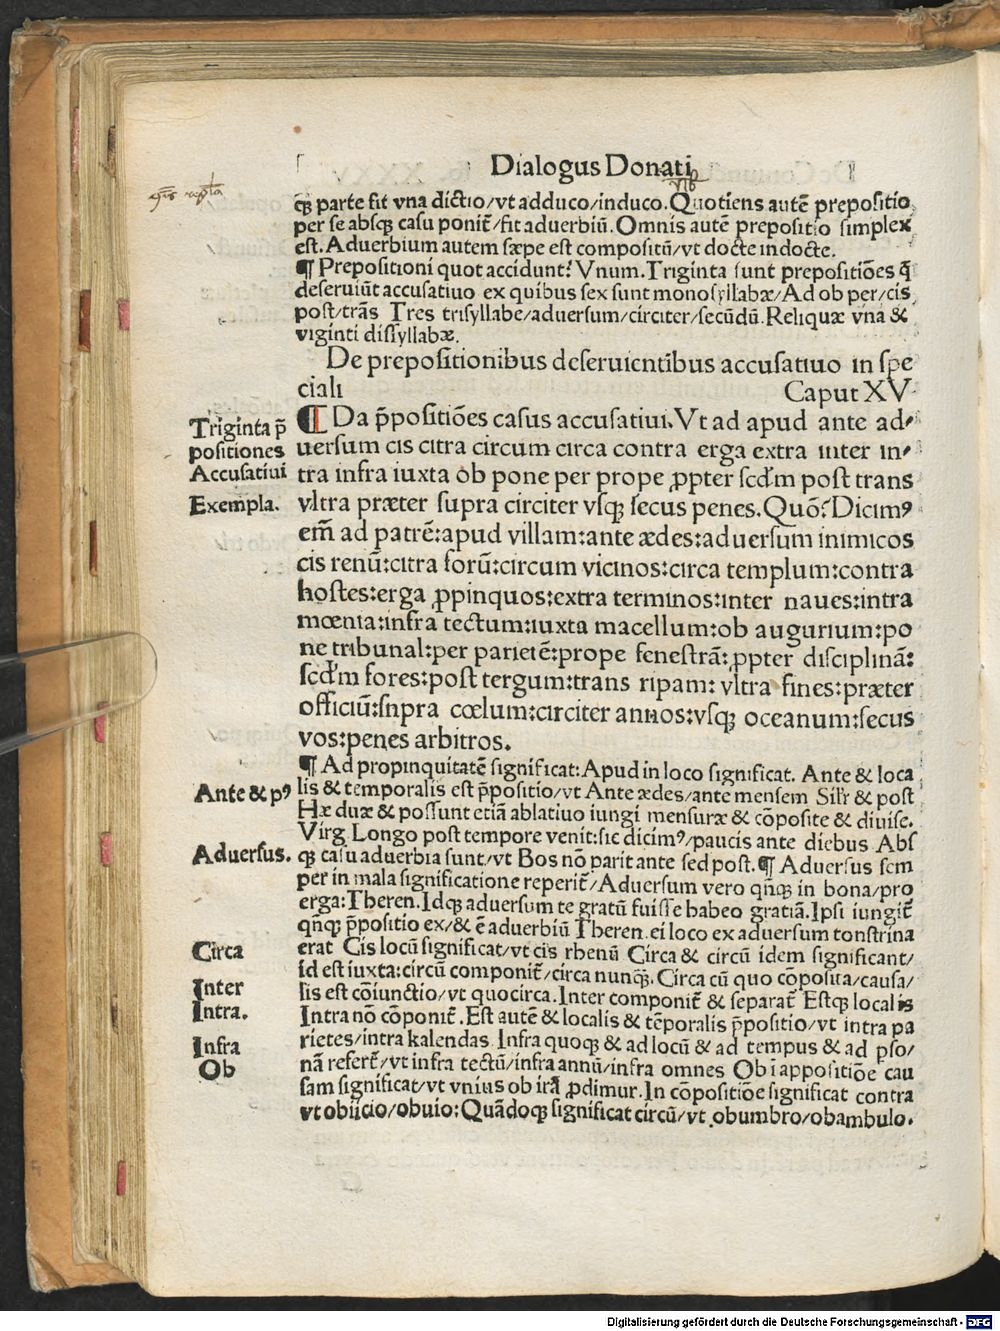 Dialogus Donati
qꝫ parte fit vna dictio/vt adduco/induco. Quotiens autē prepositio
per se absqꝫ casu ponit̄/fit aduerbiū. Omnis autē prepositio simplex
est. Aduerbium autem sæpe est compositū/vt docte indocte.
¶ Prepositioni quot accidunt? Vnum. Triginta sunt prepositiōes q̄
deseruiūt accusatiuo ex quibus sex sunt monosyllabæ/Ad ob per/cis
post/trās Tres trisyllabe/aduersum/circiter/secūdū. Reliquæ vna &
viginti dissyllabæ.
De prepositionibus deseruientibus accusatiuo in spe
ciali Caput XV
¶ Da p̄positiōes casus accusatiui. Vt ad apud ante ad-
Triginta p̄
positiones
Accusatiui
uersum cis citra circum circa contra erga extra inter in-
tra infra iuxta ob pone per prope ꝓpter scd̄m post trans
Exempla.
vltra præter supra circiter vsqꝫ secus penes. Quō? Dicimꝰ
em̄ ad patrē: apud villam: ante ædes: aduersum inimicos
cis renū: citra forū: circum vicinos: circa templum: contra
hostes: erga ꝓpinquos: extra terminos: inter naues: intra
mœnia: infra tectum: iuxta macellum: ob augurium: po
ne tribunal: per parietē: prope fenestrā: ꝓpter disciplinā:
scd̄m fores: post tergum: trans ripam: vltra fines: præter
officiū: snpra cœlum: circiter annos: vsqꝫ oceanum: secus
vos: penes arbitros.
¶ Ad propinquitatē significat: Apud in loco significat. Ante & loca
Ante & pꝰ
lis & temporalis est p̄positio/vt Ante ædes/ante mensem Sil̄r & post
Hæ duæ & possunt etiā ablatiuo iungi mensuræ & cōposite & diuise.
Virg Longo post tempore venit: sic dicimꝰ/paucis ante diebus Abs
Aduersus.
qꝫ casu aduerbia sunt/vt Bos nō parit ante sed post. ¶ Aduersus sem
per in mala significatione reperit̄/Aduersum vero qn̄qꝫ in bona/pro
erga: Theren. Idqꝫ aduersum te gratū fuisse habeo gratiā. Ipsi iungit̄
qn̄qꝫ p̄positio ex/& ē aduerbiū Theren. ei loco ex aduersum tonstrina
Circa
erat Cis locū significat/vt cis rhenū Circa & circū idem significant/
id est iuxta: circū componit̄/circa nunqꝫ. Circa cū quo cōposita/causa/
Inter
lis est cōiunctio/vt quocirca. Inter componit̄ & separat̄ Estqꝫ localis
Intra.
Intra nō cōponit̄. Est autē & localis & tēporalis p̄positio/vt intra pa
rietes/intra kalendas Infra quoqꝫ & ad locū & ad tempus & ad pso/
Infra
Ob
nā refert̄/vt infra tectū/infra annū/infra omnes Ob ī appositiōe cau
sam significat/vt vnius ob irā ꝓdimur. In cōpositiōe significat contra
vt obiicio/obuio: Quādoqꝫ significat circū/vt obumbro/obambulo.
Digitalisierung gefördert durch die Deutsche Forschungsgemeinschaft - DFG